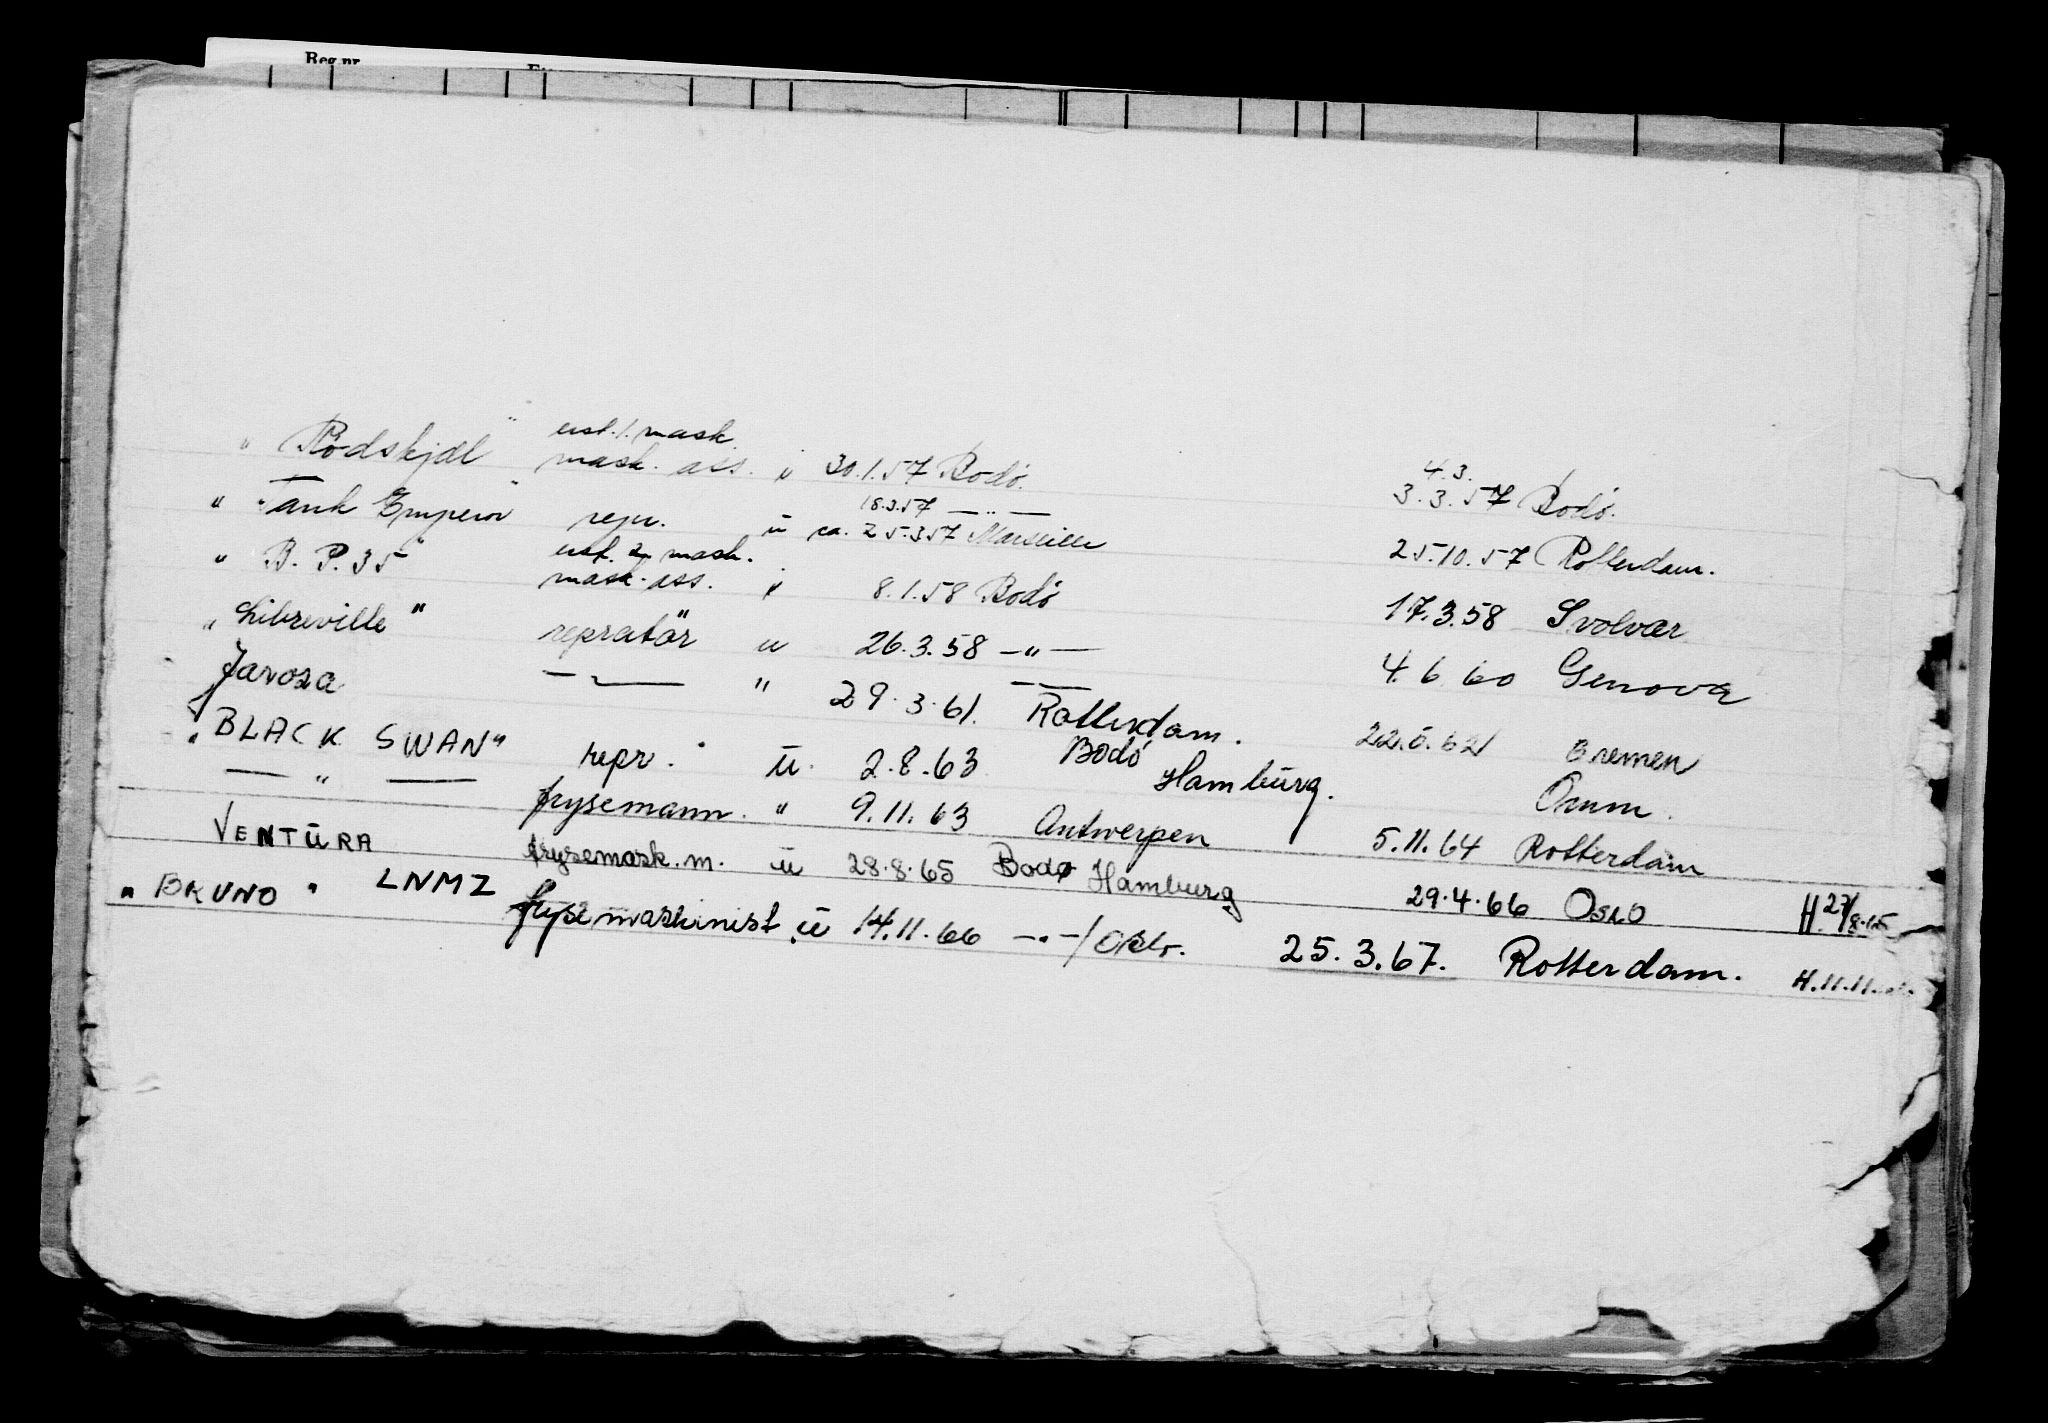 Reg.nr.
" Rødskjæl " ust. 1. mask. mask. ass. " 30.1.57 Bodø. 4.3. 3.3.57 Bodø.
" Tank Emperor " repr. ü ca. 18.3.57 — " — 25.3.57 Marseille 25.10.57 Rotterdam.
" B. P. 35 " ust. 2 mask. mask. ass. " 8.1.58 Bodø 17.3.58 Svolvær
" Libreville " repratør u 26.3.58 — " — 4.6.60 Genova
Javosa — " — " 29.3.61. Rotterdam. 22.6.62 Bremen
" BLACK SWAN " repr. ü. 2.8.63 Bodø Hamburg. Omm.
— " — frysemann. " 9.11.63 Antwerpen 5.11.64 Rotterdam
VENTURA frysemask.m. ü 28.8.65 Bodø Hamburg 29.4.66 OSLO H. 27/8.65
" BRUNO " LNMZ frysemaskinist ü 14.11.66 — " — / Oslo. 25.3.67. Rotterdam. H.11.11.